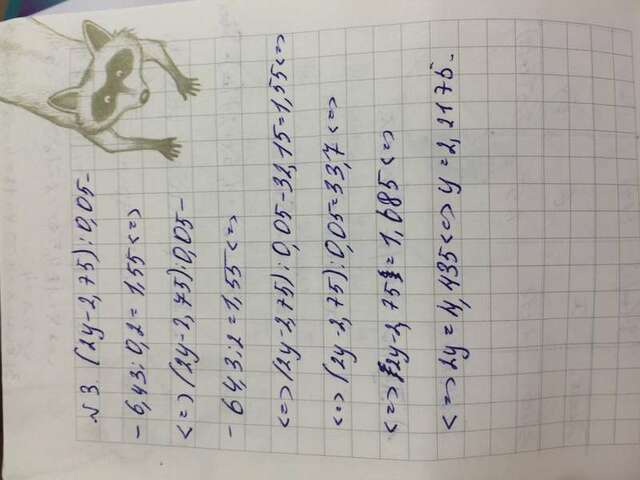 №3 (2y-2,75):0,05-
-6,43:0,2=1,55<=>
<=>(2y-2,75):0,05-
-64,3:2=1,55<=>
<=>(2y-2,75):0,05-32,15=1,55<=>
<=>(2y-2,75):0,05=33,7<=>
<=>2y-2,75=1,685<=>
<=>2y=4,435<=>y=2,2175.